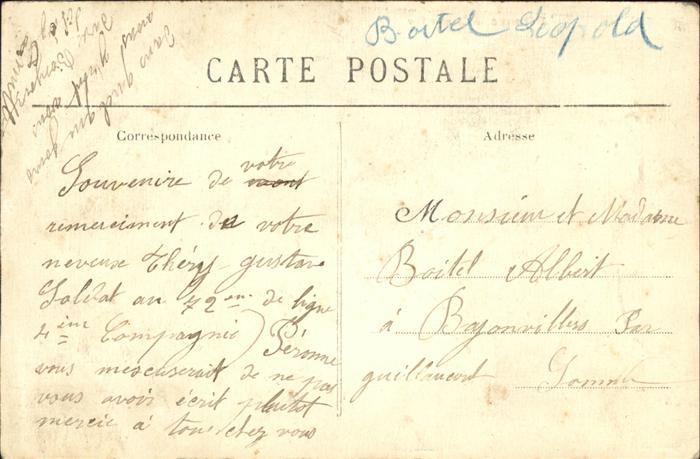 Boitel Leopold
CARTE POSTALE
Correspondance
Adresse
Souvenire de votre
remerciment de votre
neveuse Théry gustave
Soldat au 72 em de ligne
4 ème Compagnie) Péronne
vous mescuserait de ne pas
vous avoir écrit plutot
mercie à tous chez vous
Monsieur et Madame
Boitel Albert
à Bayonvillers Par
guillaucourt Somme